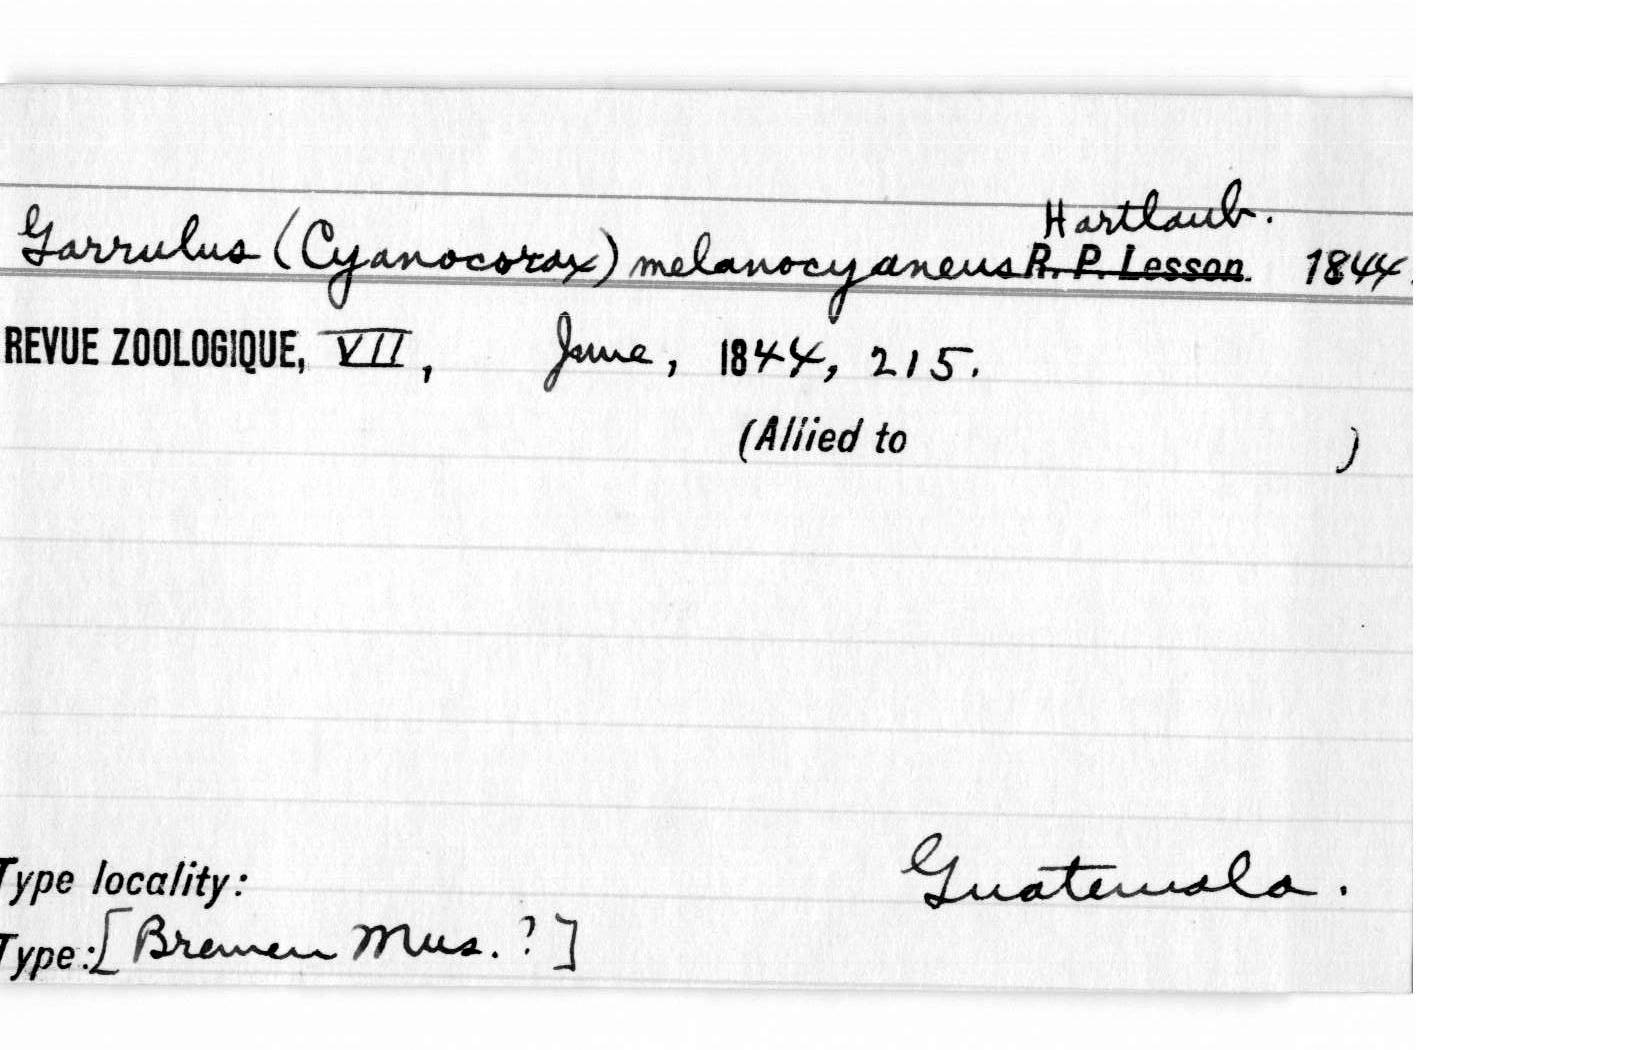 Hartlaub.
Garrulus (Cyanocorax) melanocyaneus R. P. Lesson. 1844.
REVUE ZOOLOGIQUE, VII, June, 1844, 215.
(Allied to )
Type locality: Guatemala.
Type: [Bremen Mus. ?]